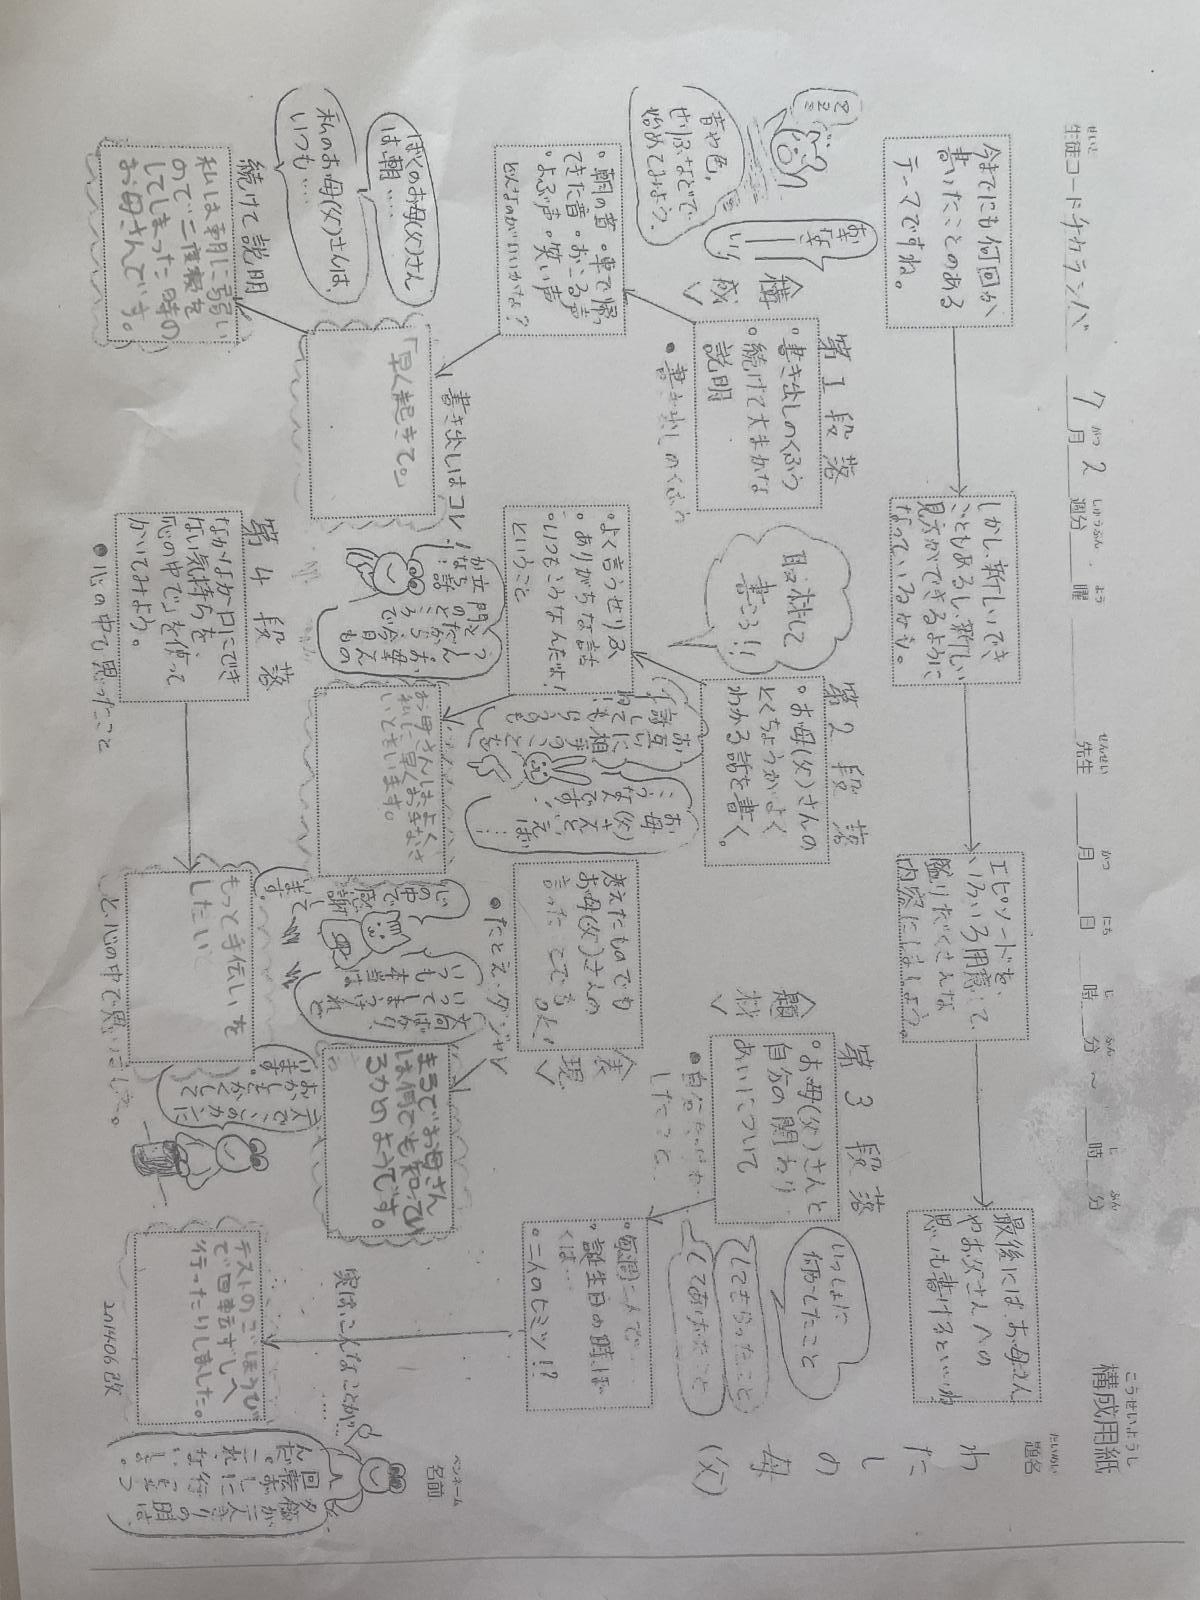 構成用紙
こうせいようし
題名
だいめい
わたしの母(父)
ペンネーム
名前
生徒コード チカランバ 7月2週分 曜 先生 月 日 時 分 ~ 時 分
今までにも何回か
書いたことのある
テーマですね。
しかし、新しいでき
ごともあるし、新しい
見方ができるように
なっているかも。
エピソードを、
いろいろ用意して、
盛りだくさんな
内容にしましょう。
最後にはお母さん
やお父さんへの
思いも書けるといいね
<構成>
第1段落
・書き出しのくふう
・続けて大まかな
説明
●書き出しのくふう
音や色、
せりふなどで
始めてみよう。
・朝の音・車で帰っ
てきた音・おこる声
・よぶ声・笑い声
どんなのがいいかな?
書き出しはコレ!
「早く起きて。」
ぼくのお母(父)さん
は朝…
私のお母(父)さんは、
いつも…
続けて説明
私は朝に弱い
ので二度寝を
してしまった時の
お母さんです。
第2段落
・お母(父)さんの
とくちょうがよく
わかる話を書く。
取材して
書こう!!
・よく言うせりふ
・ありがちな話
・いつもこうなんだよ!
ということ
お母さんはよく
私に早くおきなさ
いと言います。
お母(父)
さんと、
<題材>
第3段落
・お母(父)さんと
自分の関わり
あいについて
いっしょに
何かしたこと
してもらったこと
してあげたこと
・夜間二人で…
・誕生日の時、ぼ
くは…
・二人のヒミツ!?
実はこんなことが…
テストのごほうび
で回転ずしへ
行ったりしました。
<表現>
●たとえ・ダジャレ
考えたものでも
お母(父)さんの
言ったことでも
OK!
まるでお母さん
は何でも知ってい
るカメのようです。
第4段落
なかなか口にでき
ない気持ちを、
「心の中で」を使って
かいてみよう。
●心の中で思ったこと
もっと手伝いを
したい
と心の中で思いました。
いつも
文句ばかり
いってしまう
けれど
本当は
心の中で
感謝
してい
ます。
201406改